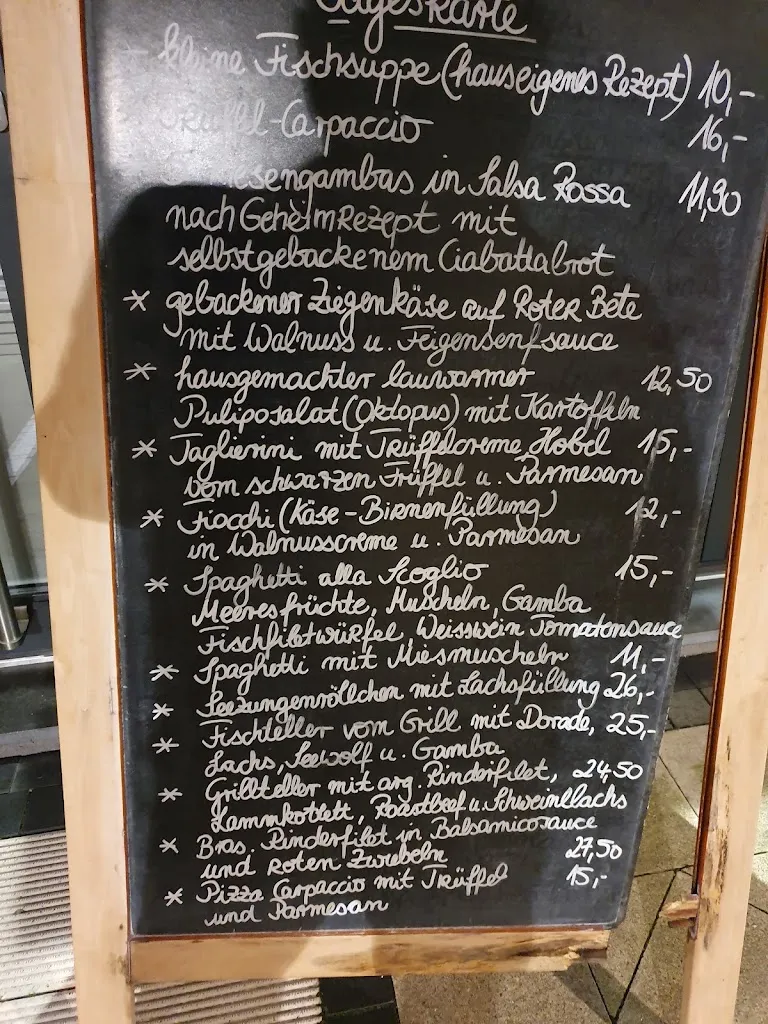 Tageskarte
kleine Fischsuppe (hauseigenes Rezept) 10,-
Trüffel-Carpaccio 16,-
Riesengambas in Salsa Rossa 11,90
nach Geheimrezept mit
selbstgebackenem Ciabattabrot
* gebackener Ziegenkäse auf Roter Bete
mit Walnuss u. Feigensenfsauce
* hausgemachter lauwarmer 12,50
Puliposalat (Oktopus) mit Kartoffeln
* Taglierini mit Trüffelcreme, Hobel 15,-
vom schwarzen Trüffel u. Parmesan
* Fiocchi (Käse-Birnenfüllung) 12,-
in Walnusscreme u. Parmesan
* Spaghetti alla Scoglio 15,-
Meeresfrüchte, Muscheln, Gamba
Fischfiletwürfel, Weisswein Tomatensauce
* Spaghetti mit Miesmuscheln 11,-
* Seezungenröllchen mit Lachsfüllung 26,-
* Fischteller vom Grill mit Dorade, 25,-
Lachs, Seewolf u. Gamba
* Grillteller mit arg. Rinderfilet, 24,50
Lammkotlett, Roastbeef u. Schweinelachs
* Bras. Rinderfilet in Balsamicosauce
und roten Zwiebeln 27,50
* Pizza Carpaccio mit Trüffel 15,-
und Parmesan